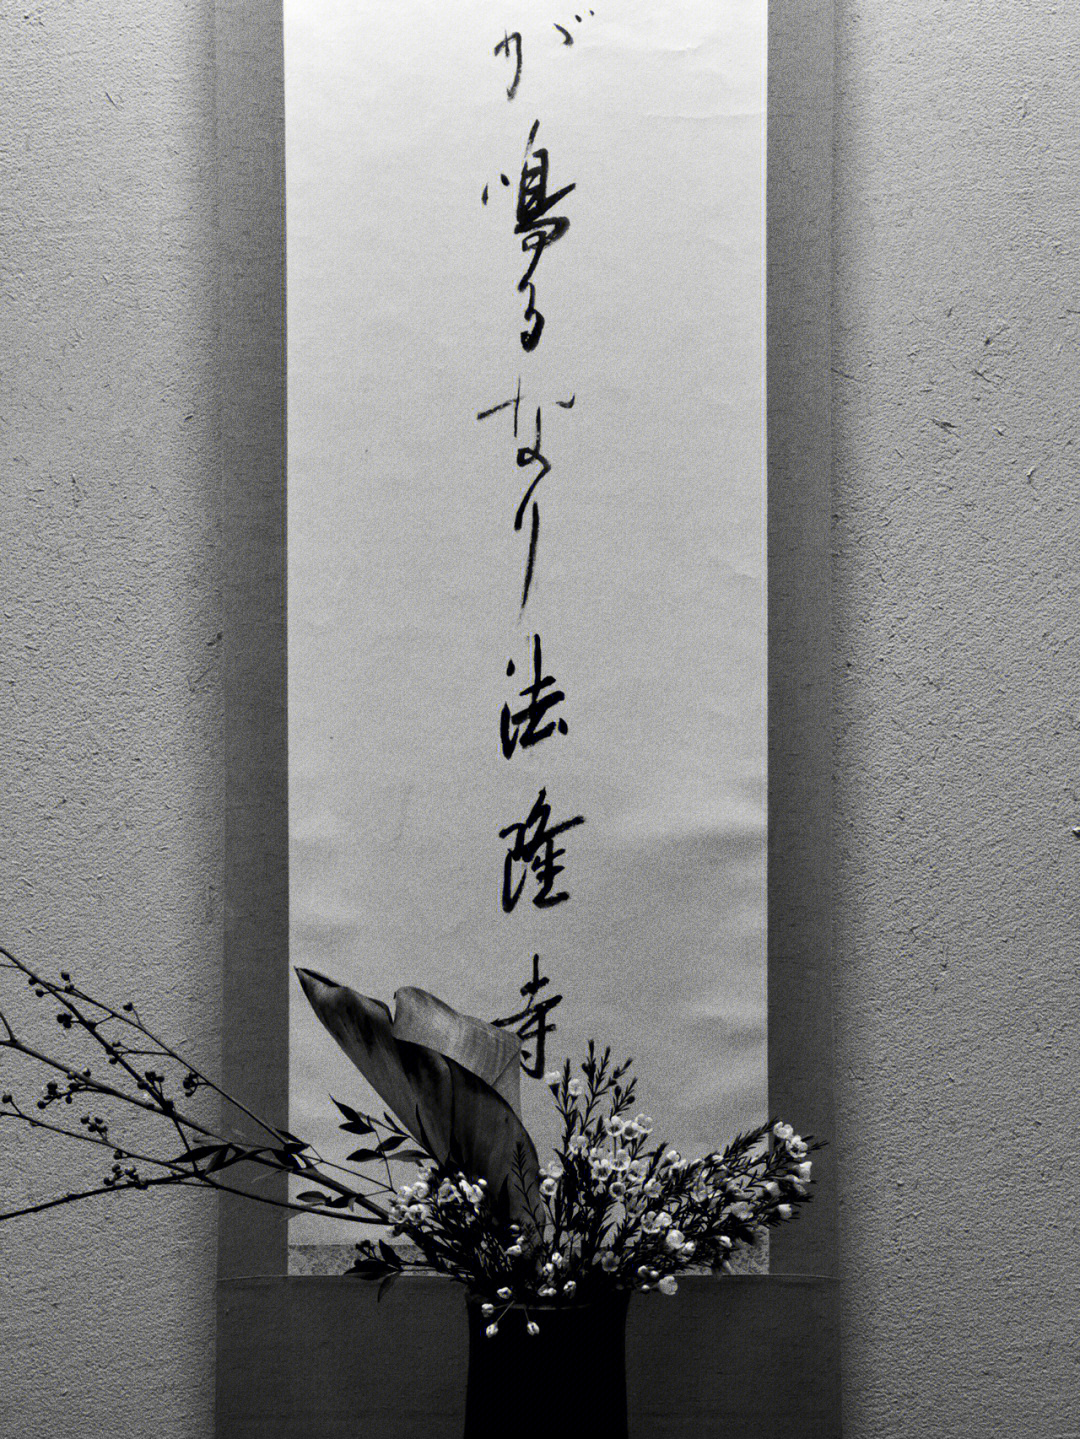 が鳴るなり法隆寺